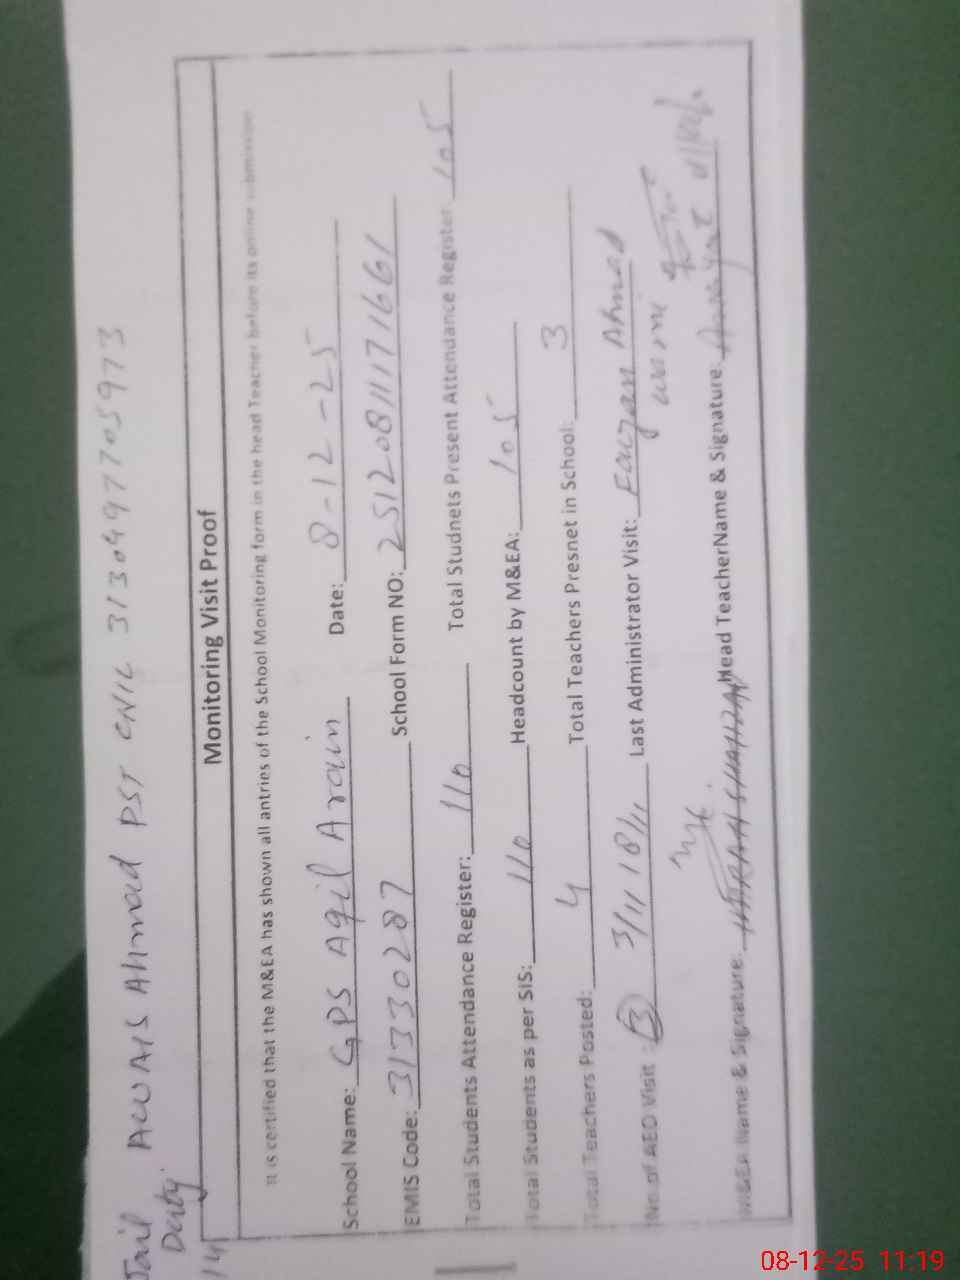 Jail AWAIS Ahmad PST CNIC 3130497705973
Duty
14
Monitoring Visit Proof
It is certified that the M&EA has shown all antries of the School Monitoring form in the head Teacher before its online submission
School Name: GPS Aqil Arain Date: 8-12-25
EMIS Code: 31330287 School Form NO: 25120811171661
Total Students Attendance Register: 110 Total Studnets Present Attendance Register 105
Total Students as per SIS: 110 Headcount by M&EA: 105
Total Teachers Posted: 4 Total Teachers Presnet in School: 3
No. of AEO Visit : 3 3/11 18/11 Last Administrator Visit: Faizan Ahmad
M&EA Name & Signature: Head TeacherName & Signature:
08-12-25 11:19